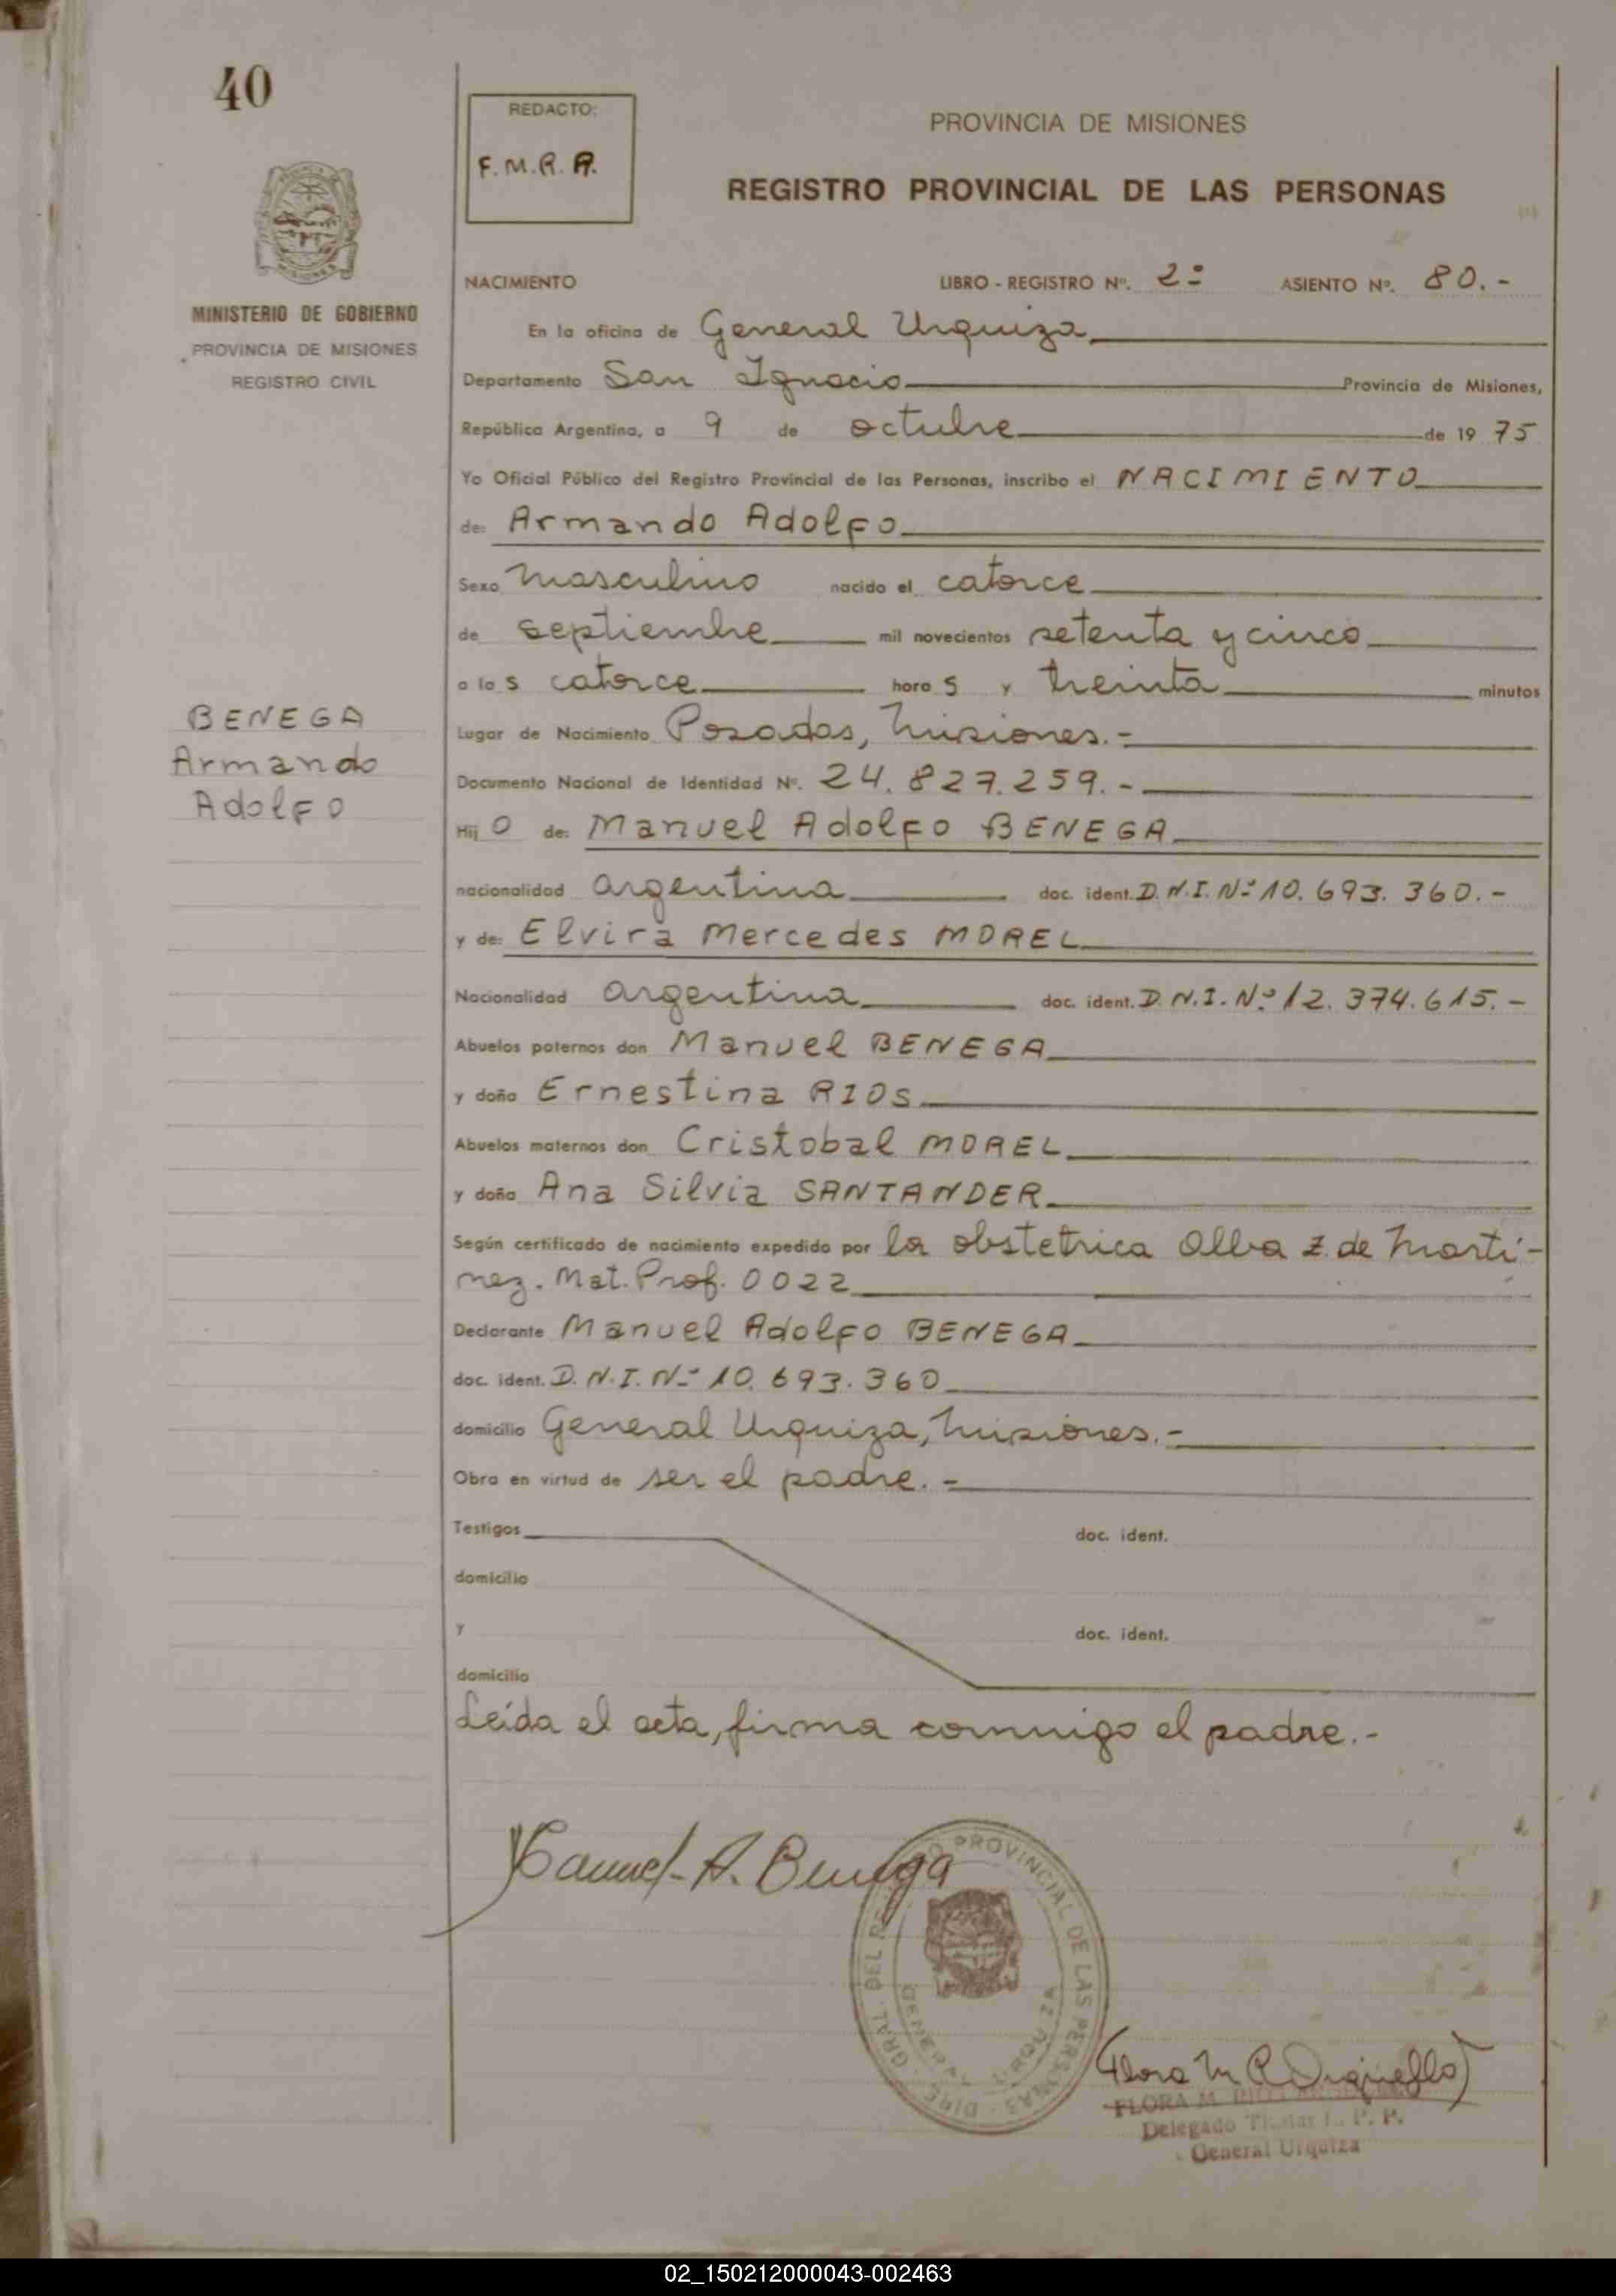 40
REDACTO:
F.M.R.A.
PROVINCIA DE MISIONES
REGISTRO PROVINCIAL DE LAS PERSONAS
MINISTERIO DE GOBIERNO
PROVINCIA DE MISIONES
REGISTRO CIVIL
BENEGA
Armando
Adolfo
NACIMIENTO LIBRO - REGISTRO Nº. 2º ASIENTO Nº. 80.-
En la oficina de General Urquiza
Departamento San Ignacio Provincia de Misiones,
República Argentina, a 9 de octubre de 1975
Yo Oficial Público del Registro Provincial de las Personas, inscribo el NACIMIENTO
de: Armando Adolfo
Sexo masculino nacido el catorce
de septiembre mil novecientos setenta y cinco
a las catorce horas y treinta minutos
Lugar de Nacimiento Posadas, Misiones.-
Documento Nacional de Identidad Nº. 24.827.259.-
Hijo de: Manuel Adolfo BENEGA
nacionalidad argentina doc. ident. D.N.I. Nº 10.693.360.-
y de: Elvira Mercedes MOREL
Nacionalidad argentina doc. ident. D.N.I. Nº 12.374.615.-
Abuelos paternos don Manuel BENEGA
y doña Ernestina RIOS
Abuelos maternos don Cristobal MOREL
y doña Ana Silvia SANTANDER
Según certificado de nacimiento expedido por la obstetrica Olba Z. de Marti-
nez. Mat. Prof. 0022
Declarante Manuel Adolfo BENEGA
doc. ident. D.N.I. Nº 10.693.360
domicilio General Urquiza, Misiones.-
Obra en virtud de ser el padre.-
Testigos doc. ident.
domicilio
y doc. ident.
domicilio
Leída el acta, firma conmigo el padre.-
Manuel A. Benega
PROVINCIAL DE LAS PERSONAS
GENERAL URQUIZA
DIRE. GRAL. DEL
Flora M R
FLORA M.
Delegado Titular
General Urquiza
02_150212000043-002463